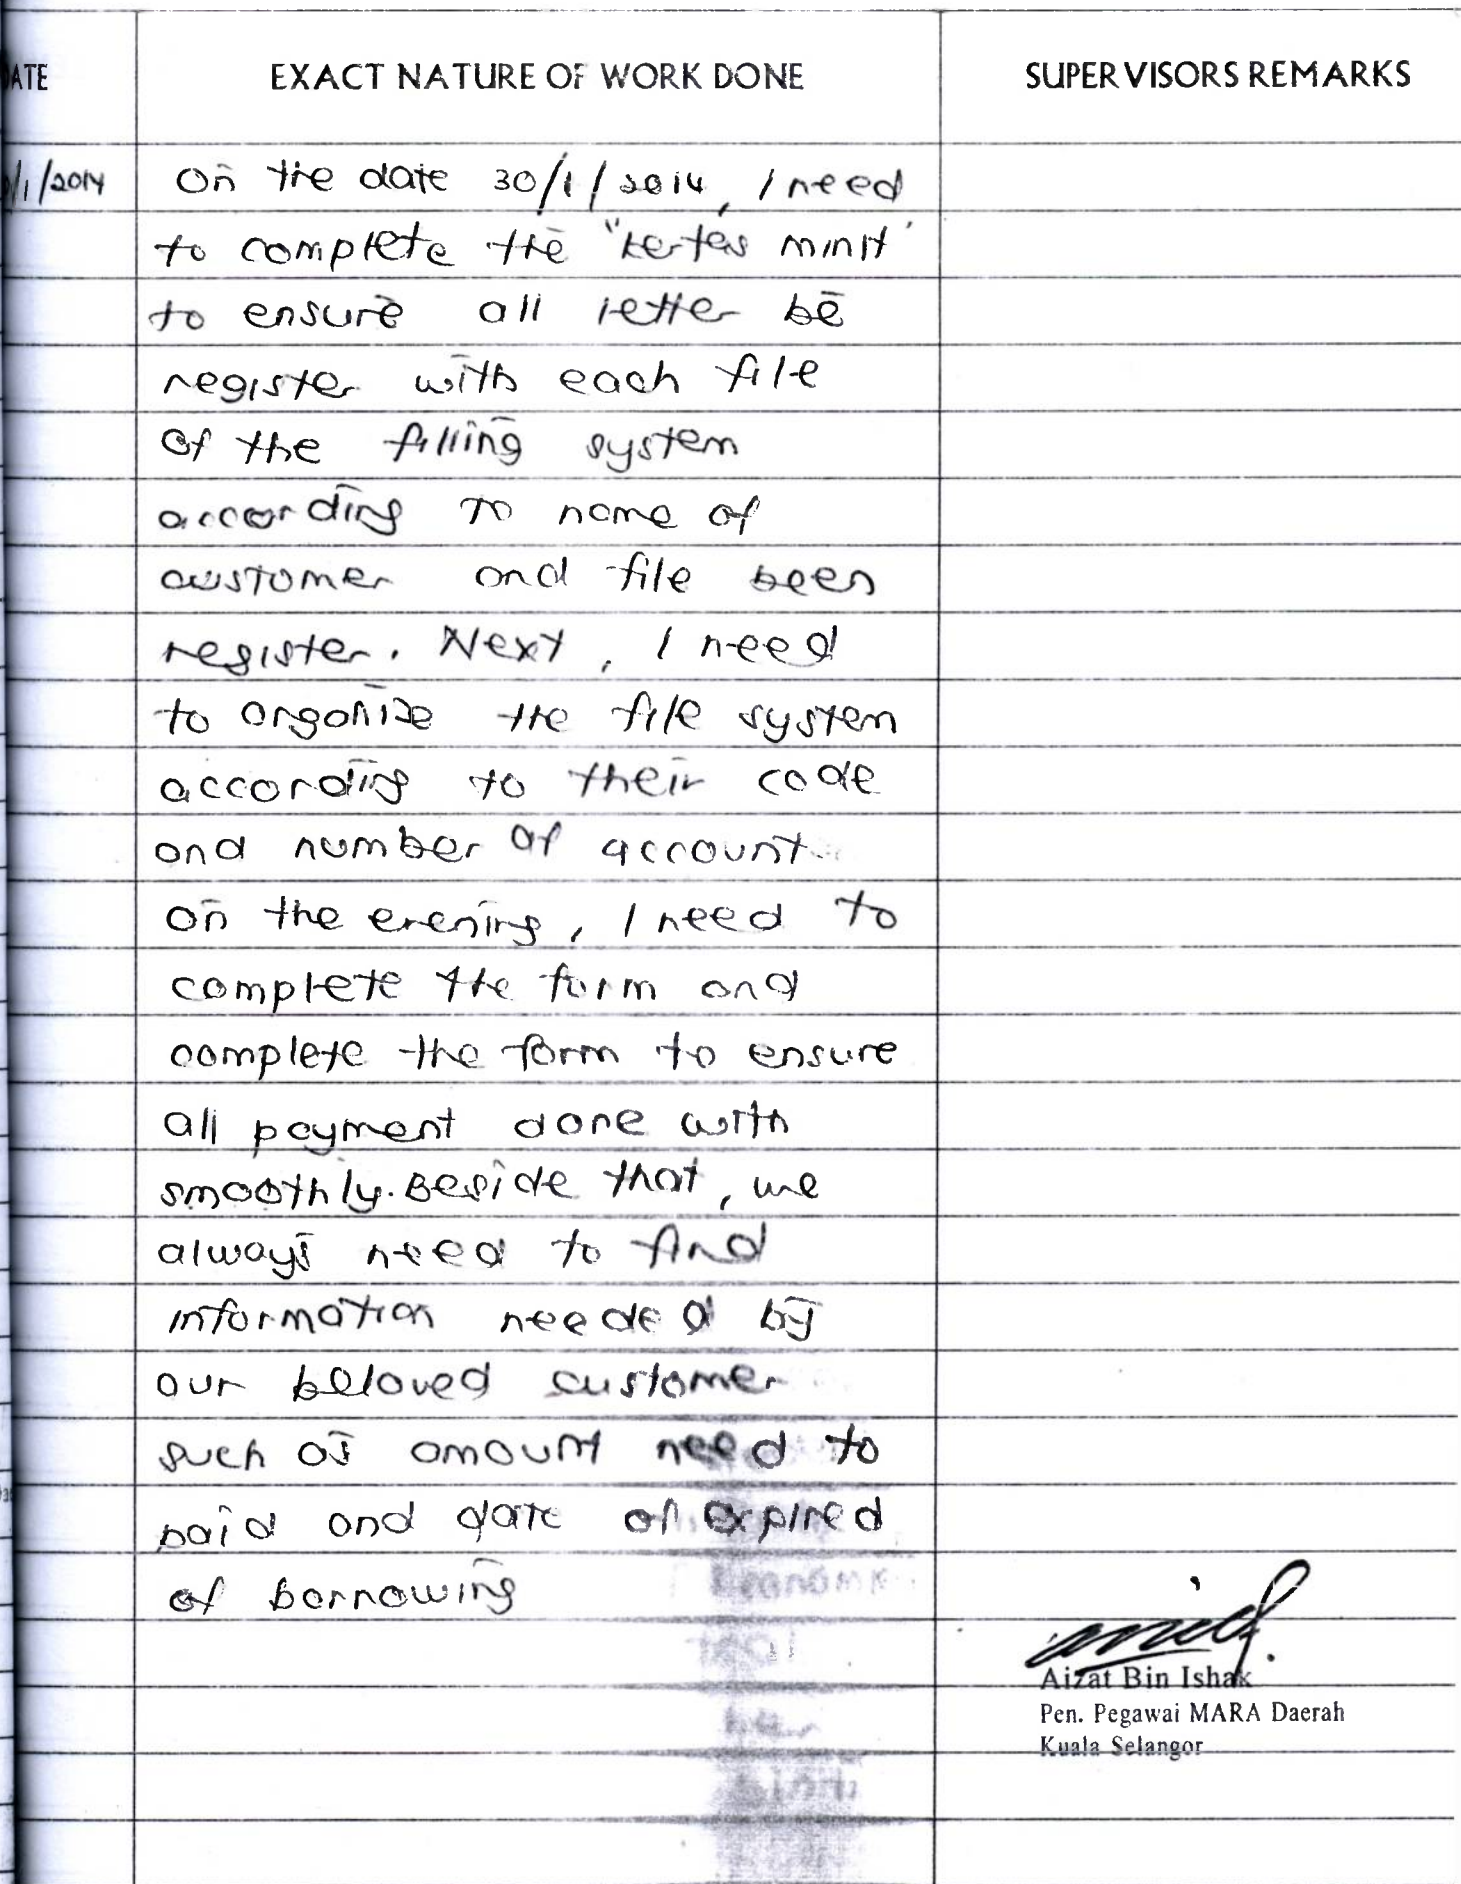 DATE EXACT NATURE OF WORK DONE SUPERVISORS REMARKS
/1/2014 On the date 30/1/2014, I need
to complete the "kertas minit'
to ensure all letter be
register with each file
of the filling system
according to name of
customer and file been
register. Next, I need
to organize the file system
according to their code
and number of account.
on the evening, I need to
complete the form and
complete the form to ensure
all payment done with
smoothly. Beside that, we
always need to find
information needed by
our beloved customer
such as amount need to
paid and date of expired
of borrowing
Aizat Bin Ishak
Pen. Pegawai MARA Daerah
Kuala Selangor